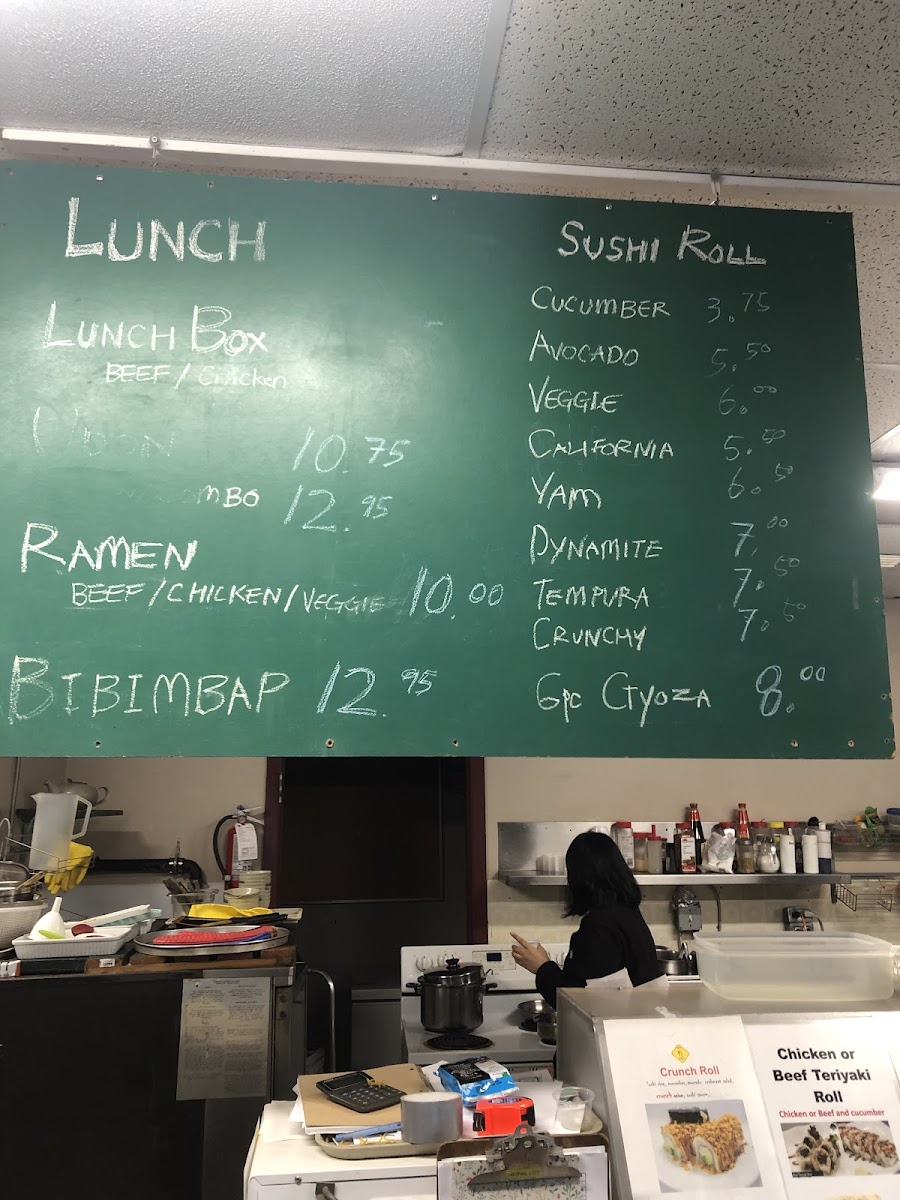 LUNCH
LUNCH BOX
BEEF / Chicken
UDON 10.75
COMBO 12.95
RAMEN
BEEF/CHICKEN/VEGGIE 10.00
BIBIMBAP 12.95
SUSHI ROLL
CUCUMBER 3.75
AVOCADO 5.50
VEGGIE 6.00
CALIFORNIA 5.50
YAM 6.50
DYNAMITE 7.00
TEMPURA 7.50
CRUNCHY 7.50
6pc Gyoza 8.00
Crunch Roll
Chicken or
Beef Teriyaki
Roll
Chicken or Beef and cucumber